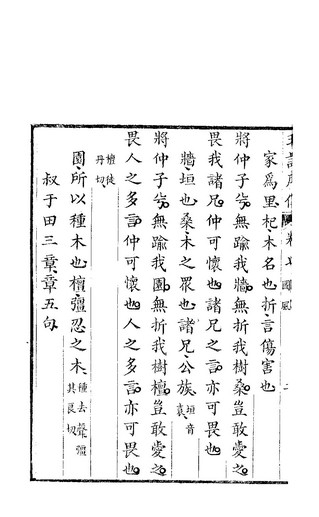 家為里杞木名也折言傷害也
將仲子兮無踰我牆無折我樹桑豈敢愛之
畏我諸兄仲可懷也諸兄之言亦可畏也
牆垣也桑木之眾也諸兄公族垣音袁
將仲子兮無踰我園無折我樹檀豈敢愛之
畏人之多言仲可懷也人之多言亦可畏也
檀徒丹切
園所以種木也檀彊忍之木種去聲彊其良切
叔于田三章章五句